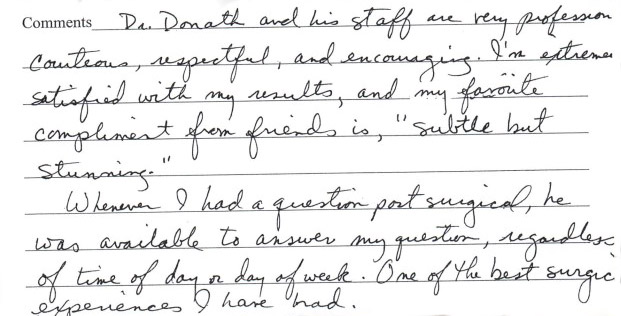 Comments Dr. Donath and his staff are very profession
courteous, respectful, and encouraging. I'm extreme
satisfied with my results, and my favorite
compliment from friends is, "subtle but
stunning."
Whenever I had a question post surgical, he
was available to answer my question, regardless
of time of day or day of week. One of the best surgic
experiences I have had.